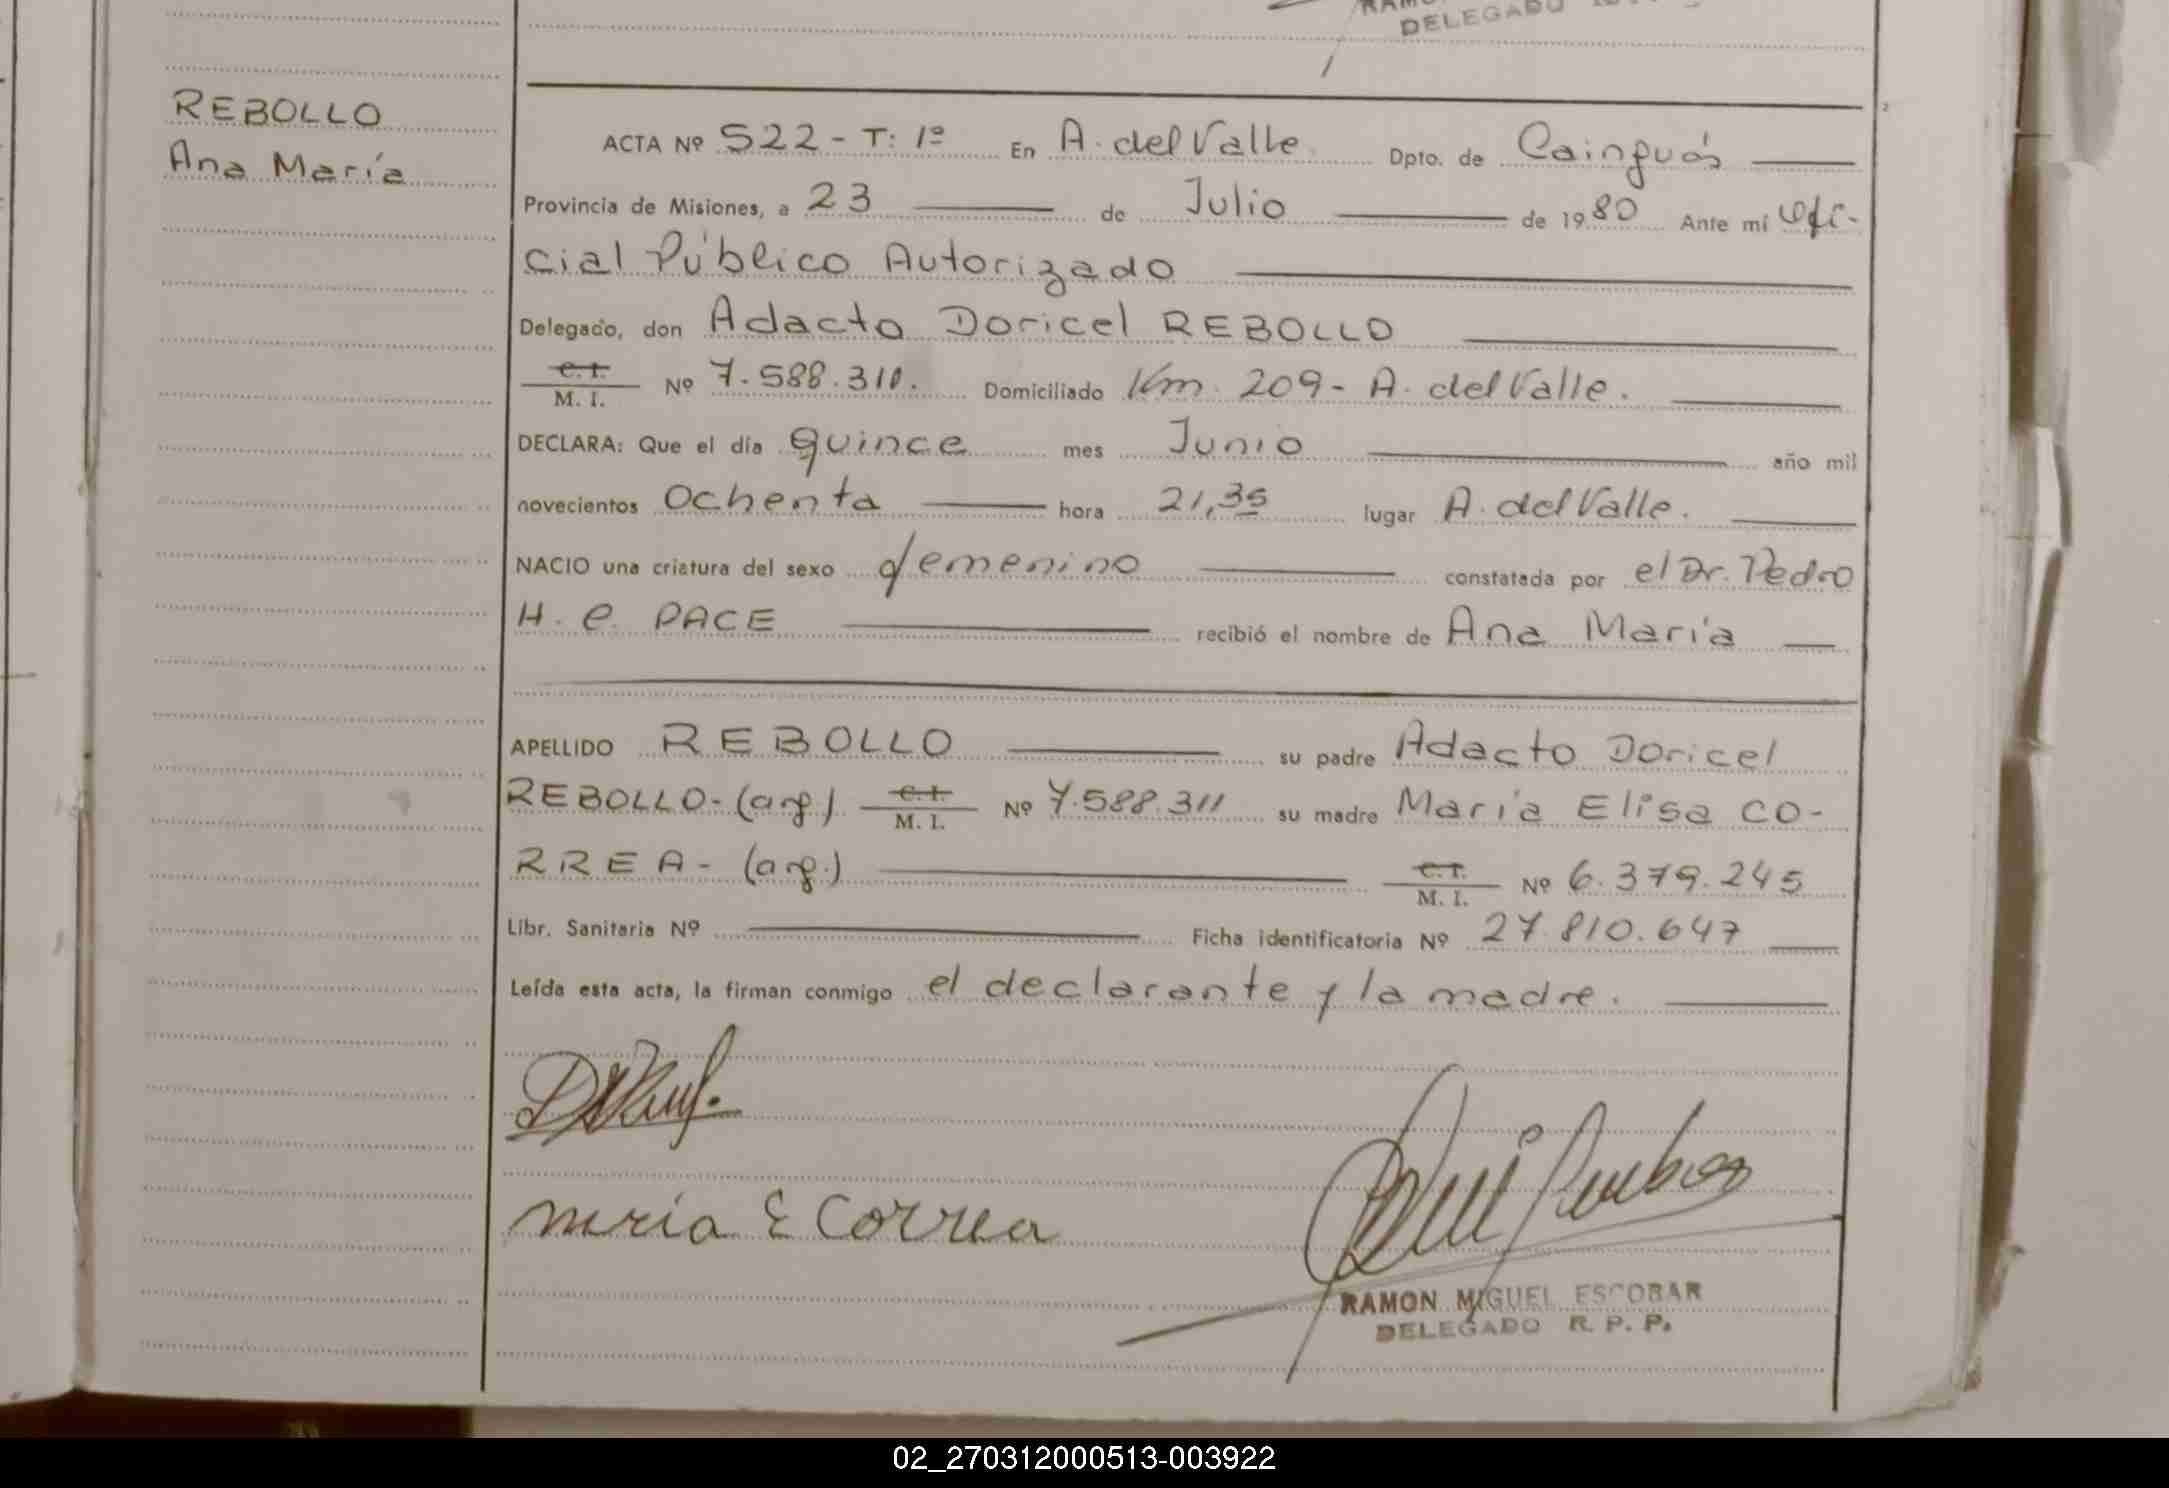 DELEGADO
REBOLLO
Ana María
ACTA Nº 522 - T: 1º En A. del Valle Dpto. de Cainguás
Provincia de Misiones, a 23 de Julio de 1980 Ante mí Ofi-
cial Público Autorizado
Delegado, don Adacto Doricel REBOLLO
C.I. M. I. Nº 7.588.311. Domiciliado Km. 209 - A. del Valle.
DECLARA: Que el día quince mes Junio año mil
novecientos Ochenta hora 21,35 lugar A. del Valle.
NACIO una criatura del sexo femenino constatada por el Dr. Pedro
H. C. PACE recibió el nombre de Ana María
APELLIDO REBOLLO su padre Adacto Doricel
REBOLLO - (arg.) C.I. M. I. Nº 7.588.311 su madre María Elisa CO-
RREA - (arg.) C.I. M. I. Nº 6.379.245
Libr. Sanitaria Nº Ficha identificatoria Nº 27.810.647
Leída esta acta, la firman conmigo el declarante y la madre.
María E Correa
RAMON MIGUEL ESCOBAR
DELEGADO R. P. P.
02_270312000513-003922